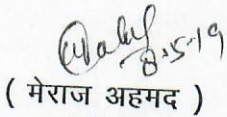 8-5-19
( मेराज अहमद )